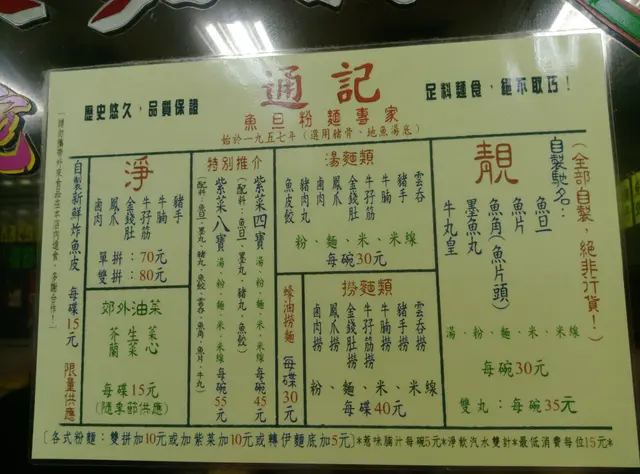 通記
歷史悠久，品質保證
足料麵食，絕不取巧！
魚旦粉麵專家
始於一九五七年（選用豬骨、地魚湯底）
靚
（全部自製，絕非行貨！）
自製馳名：
魚旦
魚片
魚角（魚片頭）
墨魚丸
牛丸皇
湯、粉、麵、米、米線
每碗30元
雙丸：每碗35元
湯麵類
雲吞
豬手
牛腩
牛孖筋
金錢肚
鳳爪
鹵肉
豬肉丸
魚皮餃
粉、麵、米、米線
每碗30元
撈麵類
雲吞撈
豬手撈
牛腩撈
牛孖筋撈
金錢肚撈
鳳爪撈
鹵肉撈
粉、麵、米、米線
每碟40元
蠔油撈麵
每碟30元
特別推介
紫菜四寶
湯、粉、麵、米、米線
每碗45元
（配料：魚旦、墨丸、豬丸、魚餃）
紫菜八寶
湯、粉、麵、米、米線
每碗55元
（配料：魚旦、墨丸、豬丸、魚餃、雲吞、魚角、魚片、牛丸）
淨
豬手
牛腩
牛孖筋
金錢肚
鳳爪
鹵肉
單拼：70元
雙拼：80元
郊外油菜
菜心
生菜
芥蘭
每碟15元
（隨季節供應）
自製新鮮炸魚皮
每碟15元
限量供應
請勿攜帶外來食品在本店內進食，多謝合作！
[各式粉麵：雙拼加10元或加紫菜加10元或轉伊麵底加5元]*惹味腩汁每碗5元*淨飲汽水雙計*最低消費每位15元*